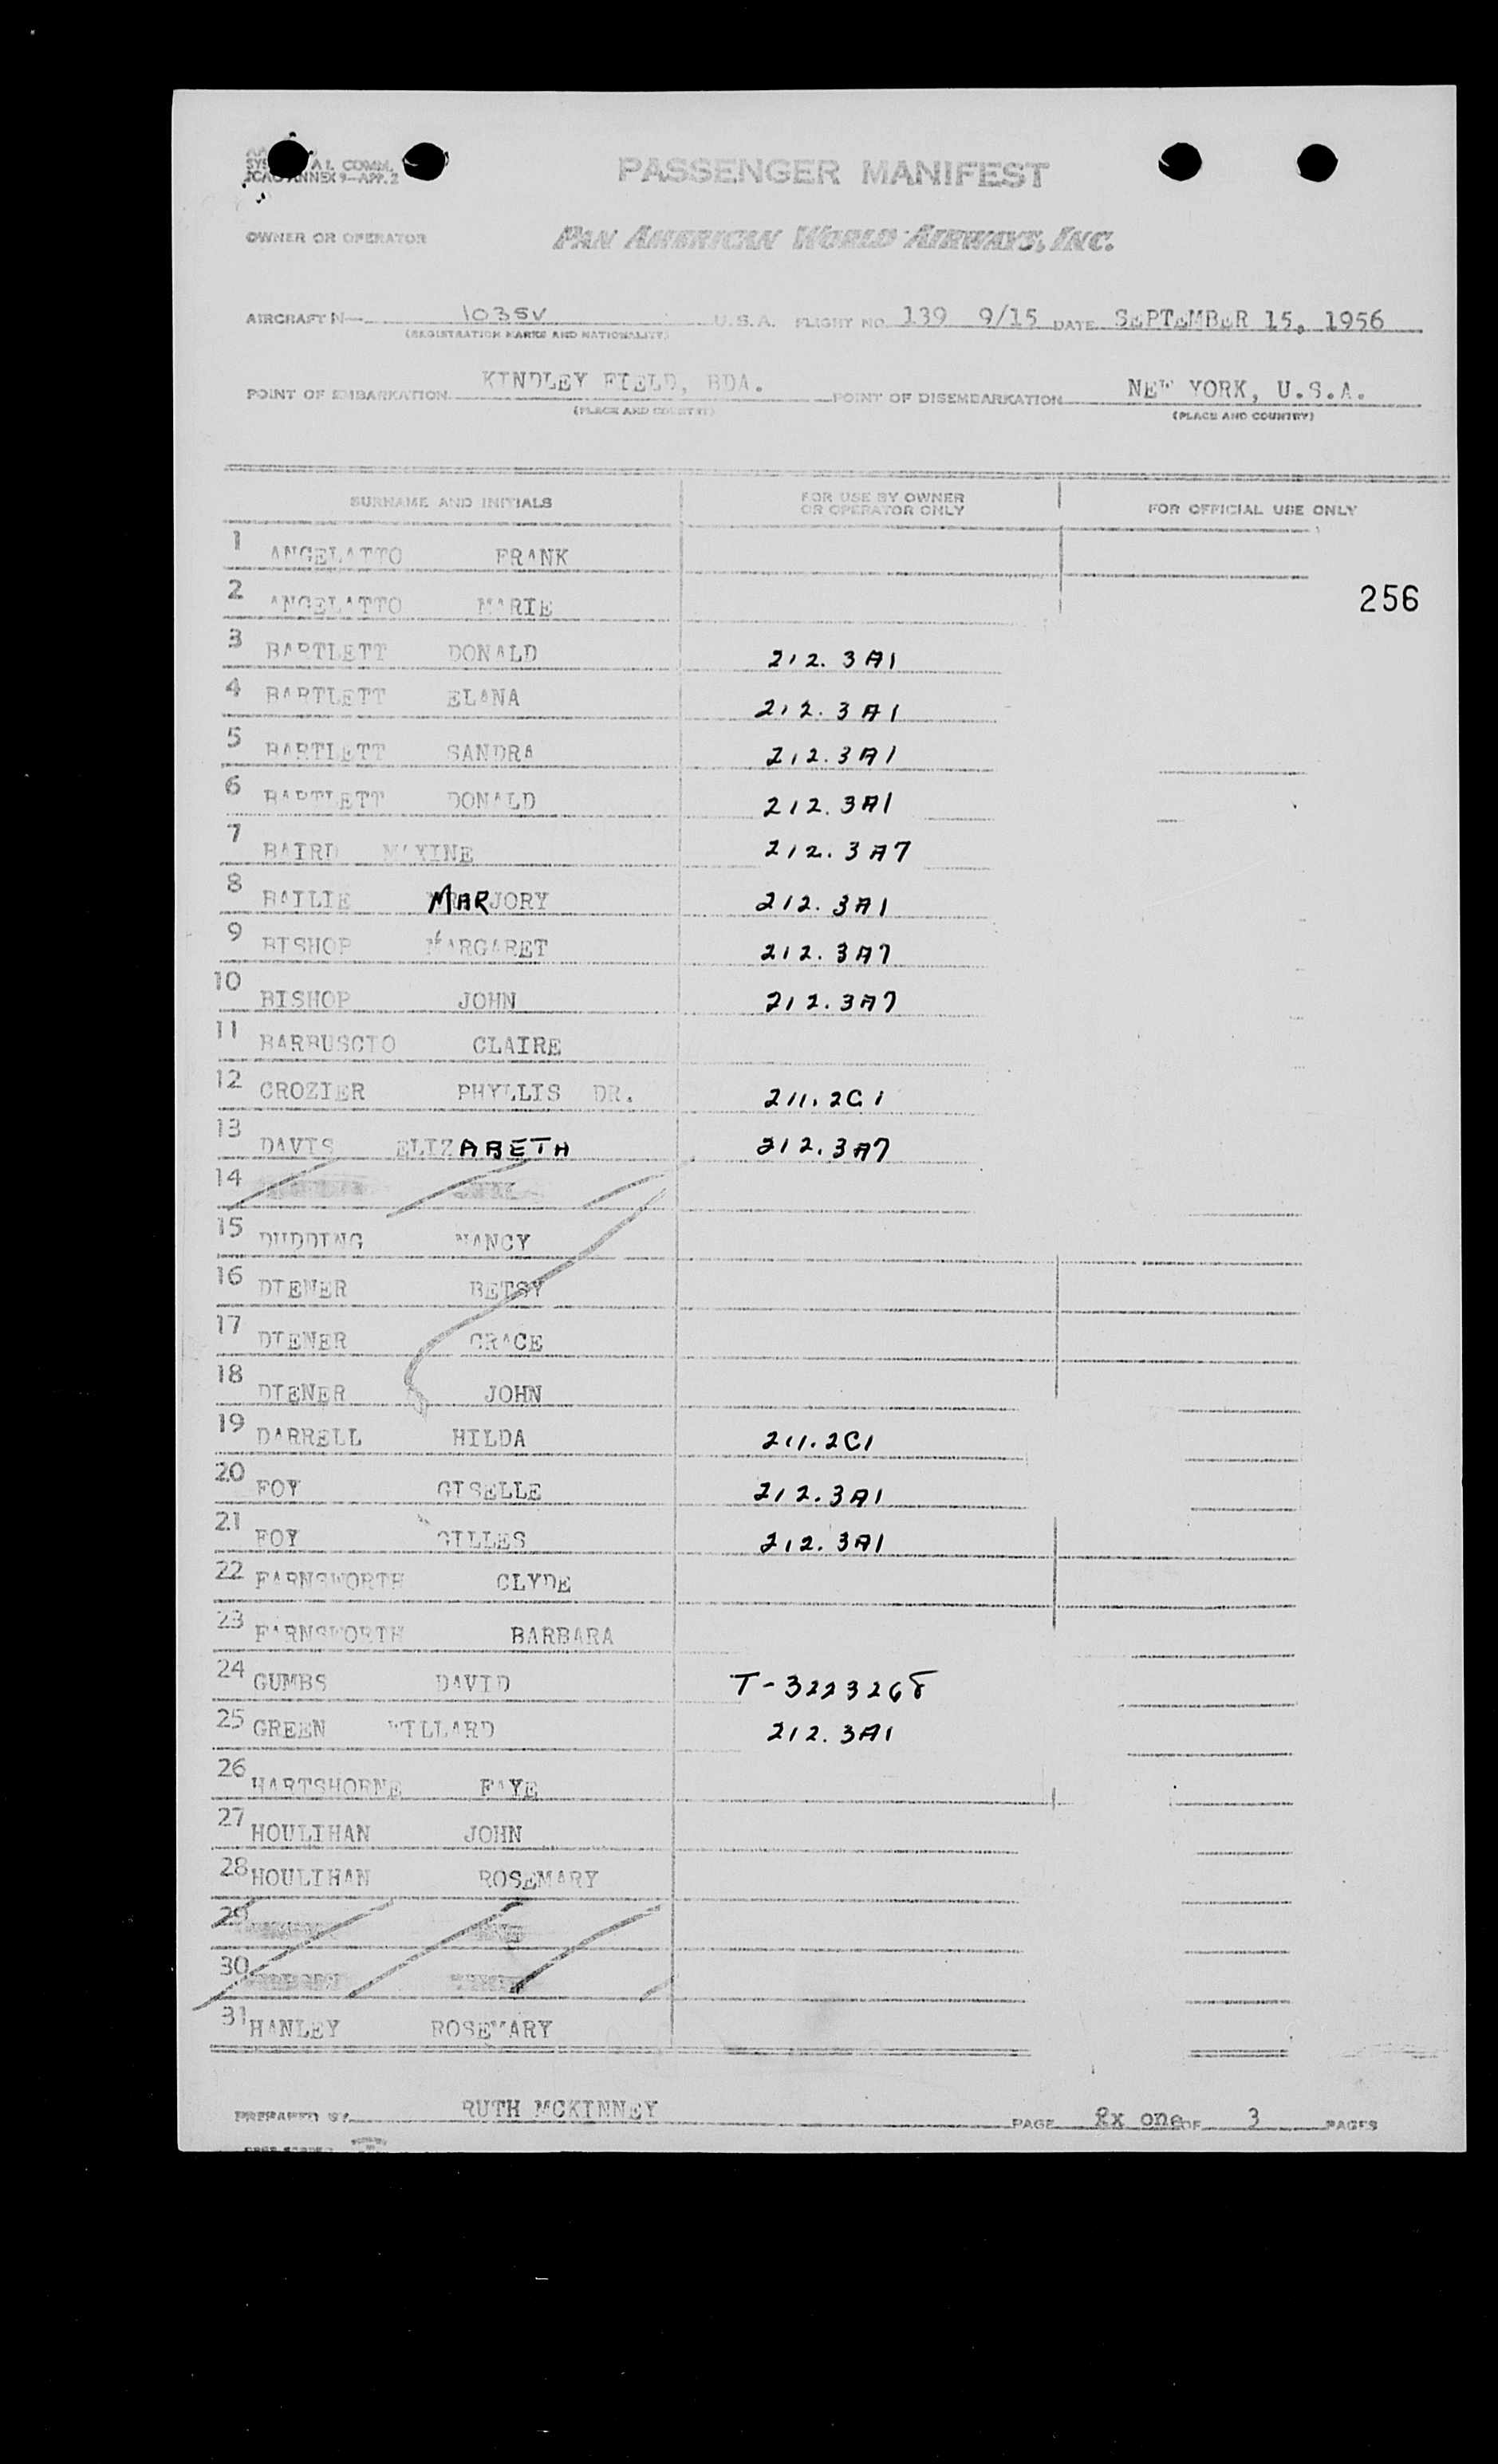 SYS A.I. COMM.
ICAO ANNEX 9—APP. 2
PASSENGER MANIFEST
OWNER OR OPERATOR PAN AMERICAN WORLD AIRWAYS, INC.
AIRCRAFT N— 1035V U.S.A. FLIGHT NO. 139 9/15 DATE SEPTEMBER 15, 1956
(REGISTRATION MARKS AND NATIONALITY)
POINT OF EMBARKATION KINDLEY FIELD, BDA. POINT OF DISEMBARKATION NEW YORK, U.S.A.
(PLACE AND COUNTRY) (PLACE AND COUNTRY)
SURNAME AND INITIALS FOR USE BY OWNER OR OPERATOR ONLY FOR OFFICIAL USE ONLY
1 ANGELATTO FRANK
2 ANGELATTO MARIE
256
3 BARTLETT DONALD 212.3A1
4 BARTLETT ELANA 212.3A1
5 BARTLETT SANDRA 212.3A1
6 BARTLETT DONALD 212.3A1
7 BAIRD MAXINE 212.3A7
8 BAILIE MARJORY 212.3A1
9 BISHOP MARGARET 212.3A7
10 BISHOP JOHN 212.3A7
11 BARBUSCIO CLAIRE
12 CROZIER PHYLLIS DR. 211.2C1
13 DAVIS ELIZABETH 212.3A7
14
15 DUDDING NANCY
16 DIENER BETSY
17 DIENER GRACE
18 DIENER JOHN
19 DARRELL HILDA 211.2C1
20 FOY GISELLE 212.3A1
21 FOY GILLES 212.3A1
22 FARNSWORTH CLYDE
23 FARNSWORTH BARBARA
24 GUMBS DAVID T-3223268
25 GREEN WILLARD 212.3A1
26 HARTSHORNE FAYE
27 HOULIHAN JOHN
28 HOULIHAN ROSEMARY
29
30
31 HANLEY ROSEMARY
PREPARED BY RUTH MCKINNEY PAGE one OF 3 PAGES